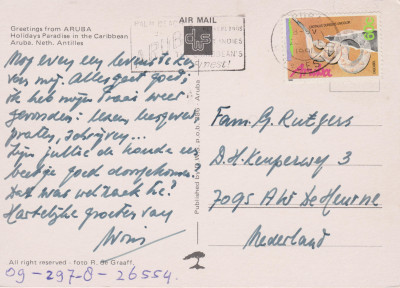 Greetings from ARUBA
Holidays Paradise in the Caribbean
Aruba. Neth. Antilles
AIR MAIL
ARUBA
dws
finest!
Aruba
Nog even een levensteken
van mij. Alles gaat goed;
ik heb mijn draai weer
gevonden: lezen lesgeven,
praten, schrijven...
Zijn jullie de koude een
beetje goed doorgekomen?
Dat was wel zeker?
Hartelijke groeten van
Wois
Fam. G. Rutgers
D.H. Keuperweg 3
7095 AW De Heurne
Nederland
All right reserved - foto R. de Graaff.
09-297-8-26554.